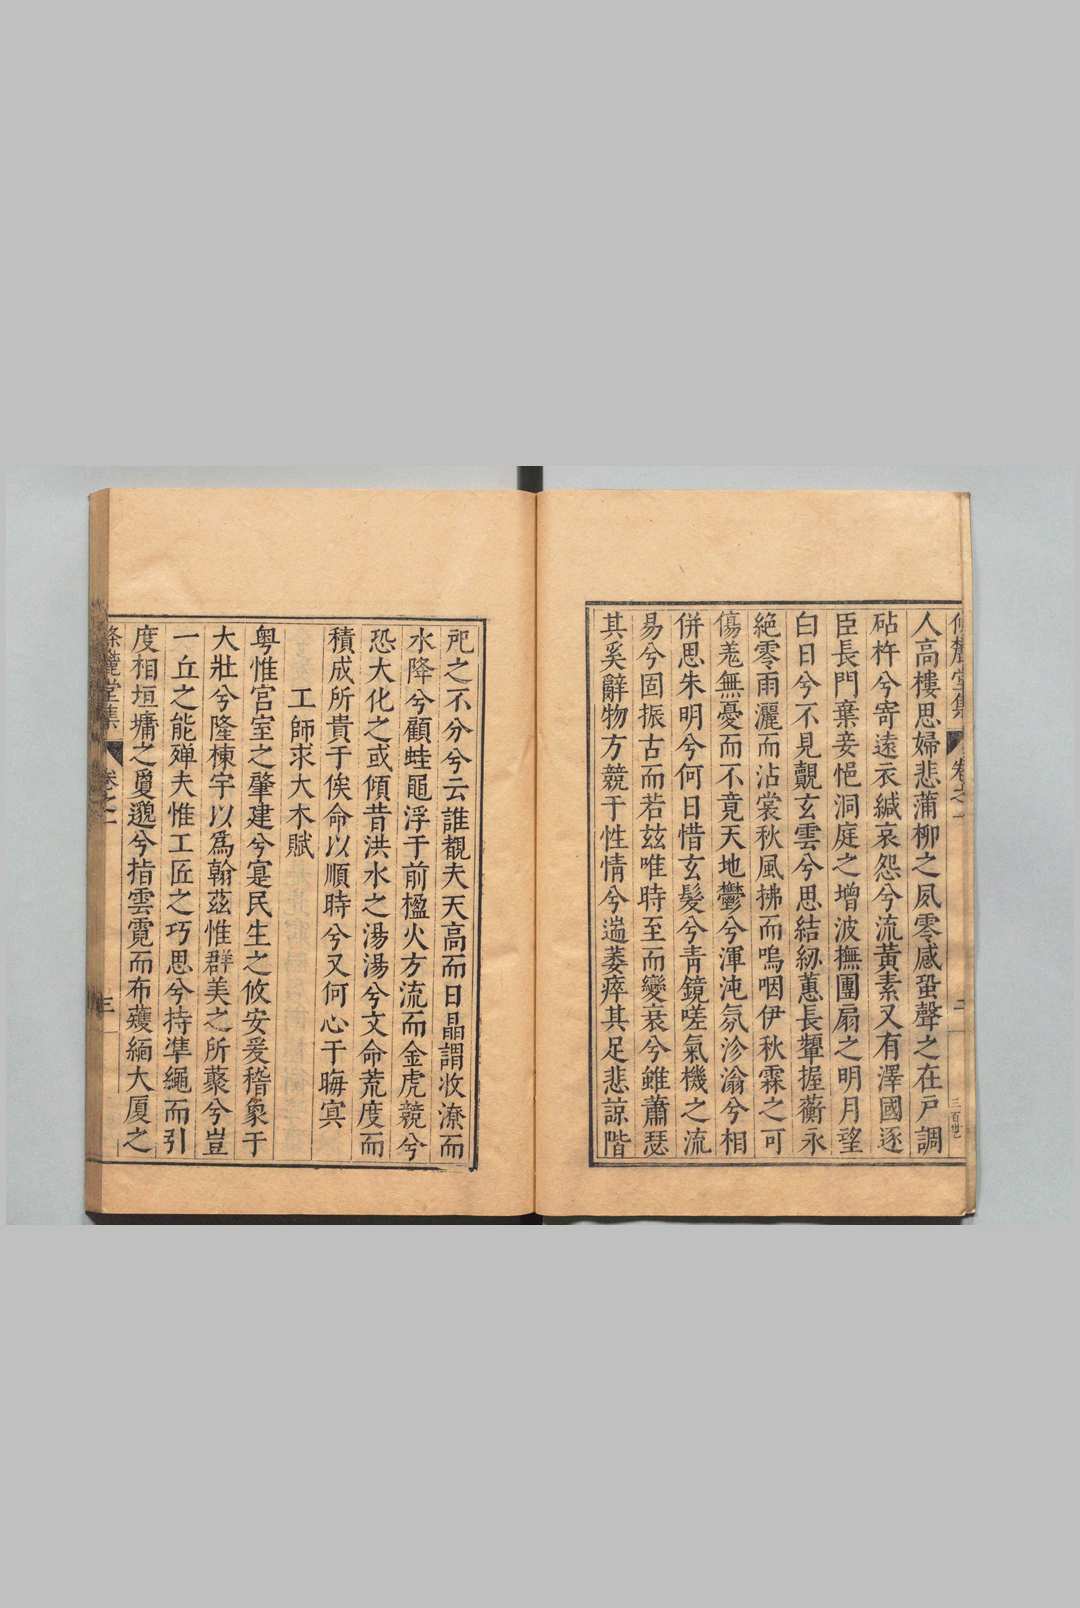 條麓堂集 卷之一 二 三百卅
人高樓思婦悲蒲柳之夙零感蛩聲之在戶調
砧杵兮寄遠衣緘哀怨兮流黃素又有澤國逐
臣長門棄妾悒洞庭之增波撫團扇之明月望
白日兮不見覿玄雲兮思結紉蕙長顰握蘅永
絕零雨灑而沾裳秋風拂而嗚咽伊秋霖之可
傷羌無憂而不竟天地鬱兮渾沌氛沴滃兮相
併思朱明兮何日惜玄髮兮青鏡嗟氣機之流
易兮固振古而若玆唯時至而變衰兮雖蕭瑟
其奚辭物方競于性情兮遄萎瘁其足悲諒階
戺之不分兮云誰覩夫天高而日晶謂收潦而
水降兮顧蛙黽浮于前楹火方流而金虎競兮
恐大化之或傾昔洪水之湯湯兮文命荒度而
積成所貴于俟命以順時兮又何心于晦冥
工師求大木賦
粵惟宫室之肇建兮寔民生之攸安爰稽象于
大壯兮隆棟宇以爲翰茲惟群美之所藂兮豈
一丘之能殫夫惟工匠之巧思兮持準繩而引
度相垣墉之敻邈兮指雲霓而布矱緬大厦之
條麓堂集 卷之一 三